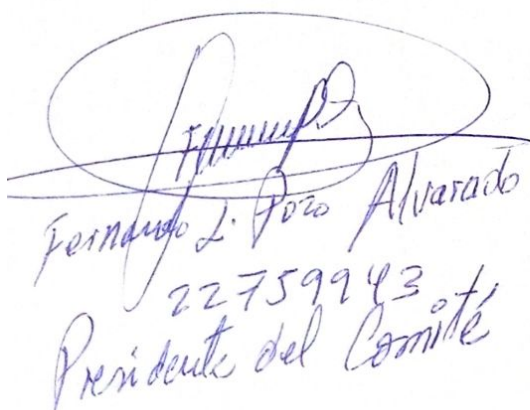 Fernando L. Pozo Alvarado
22759943
Presidente del Comité